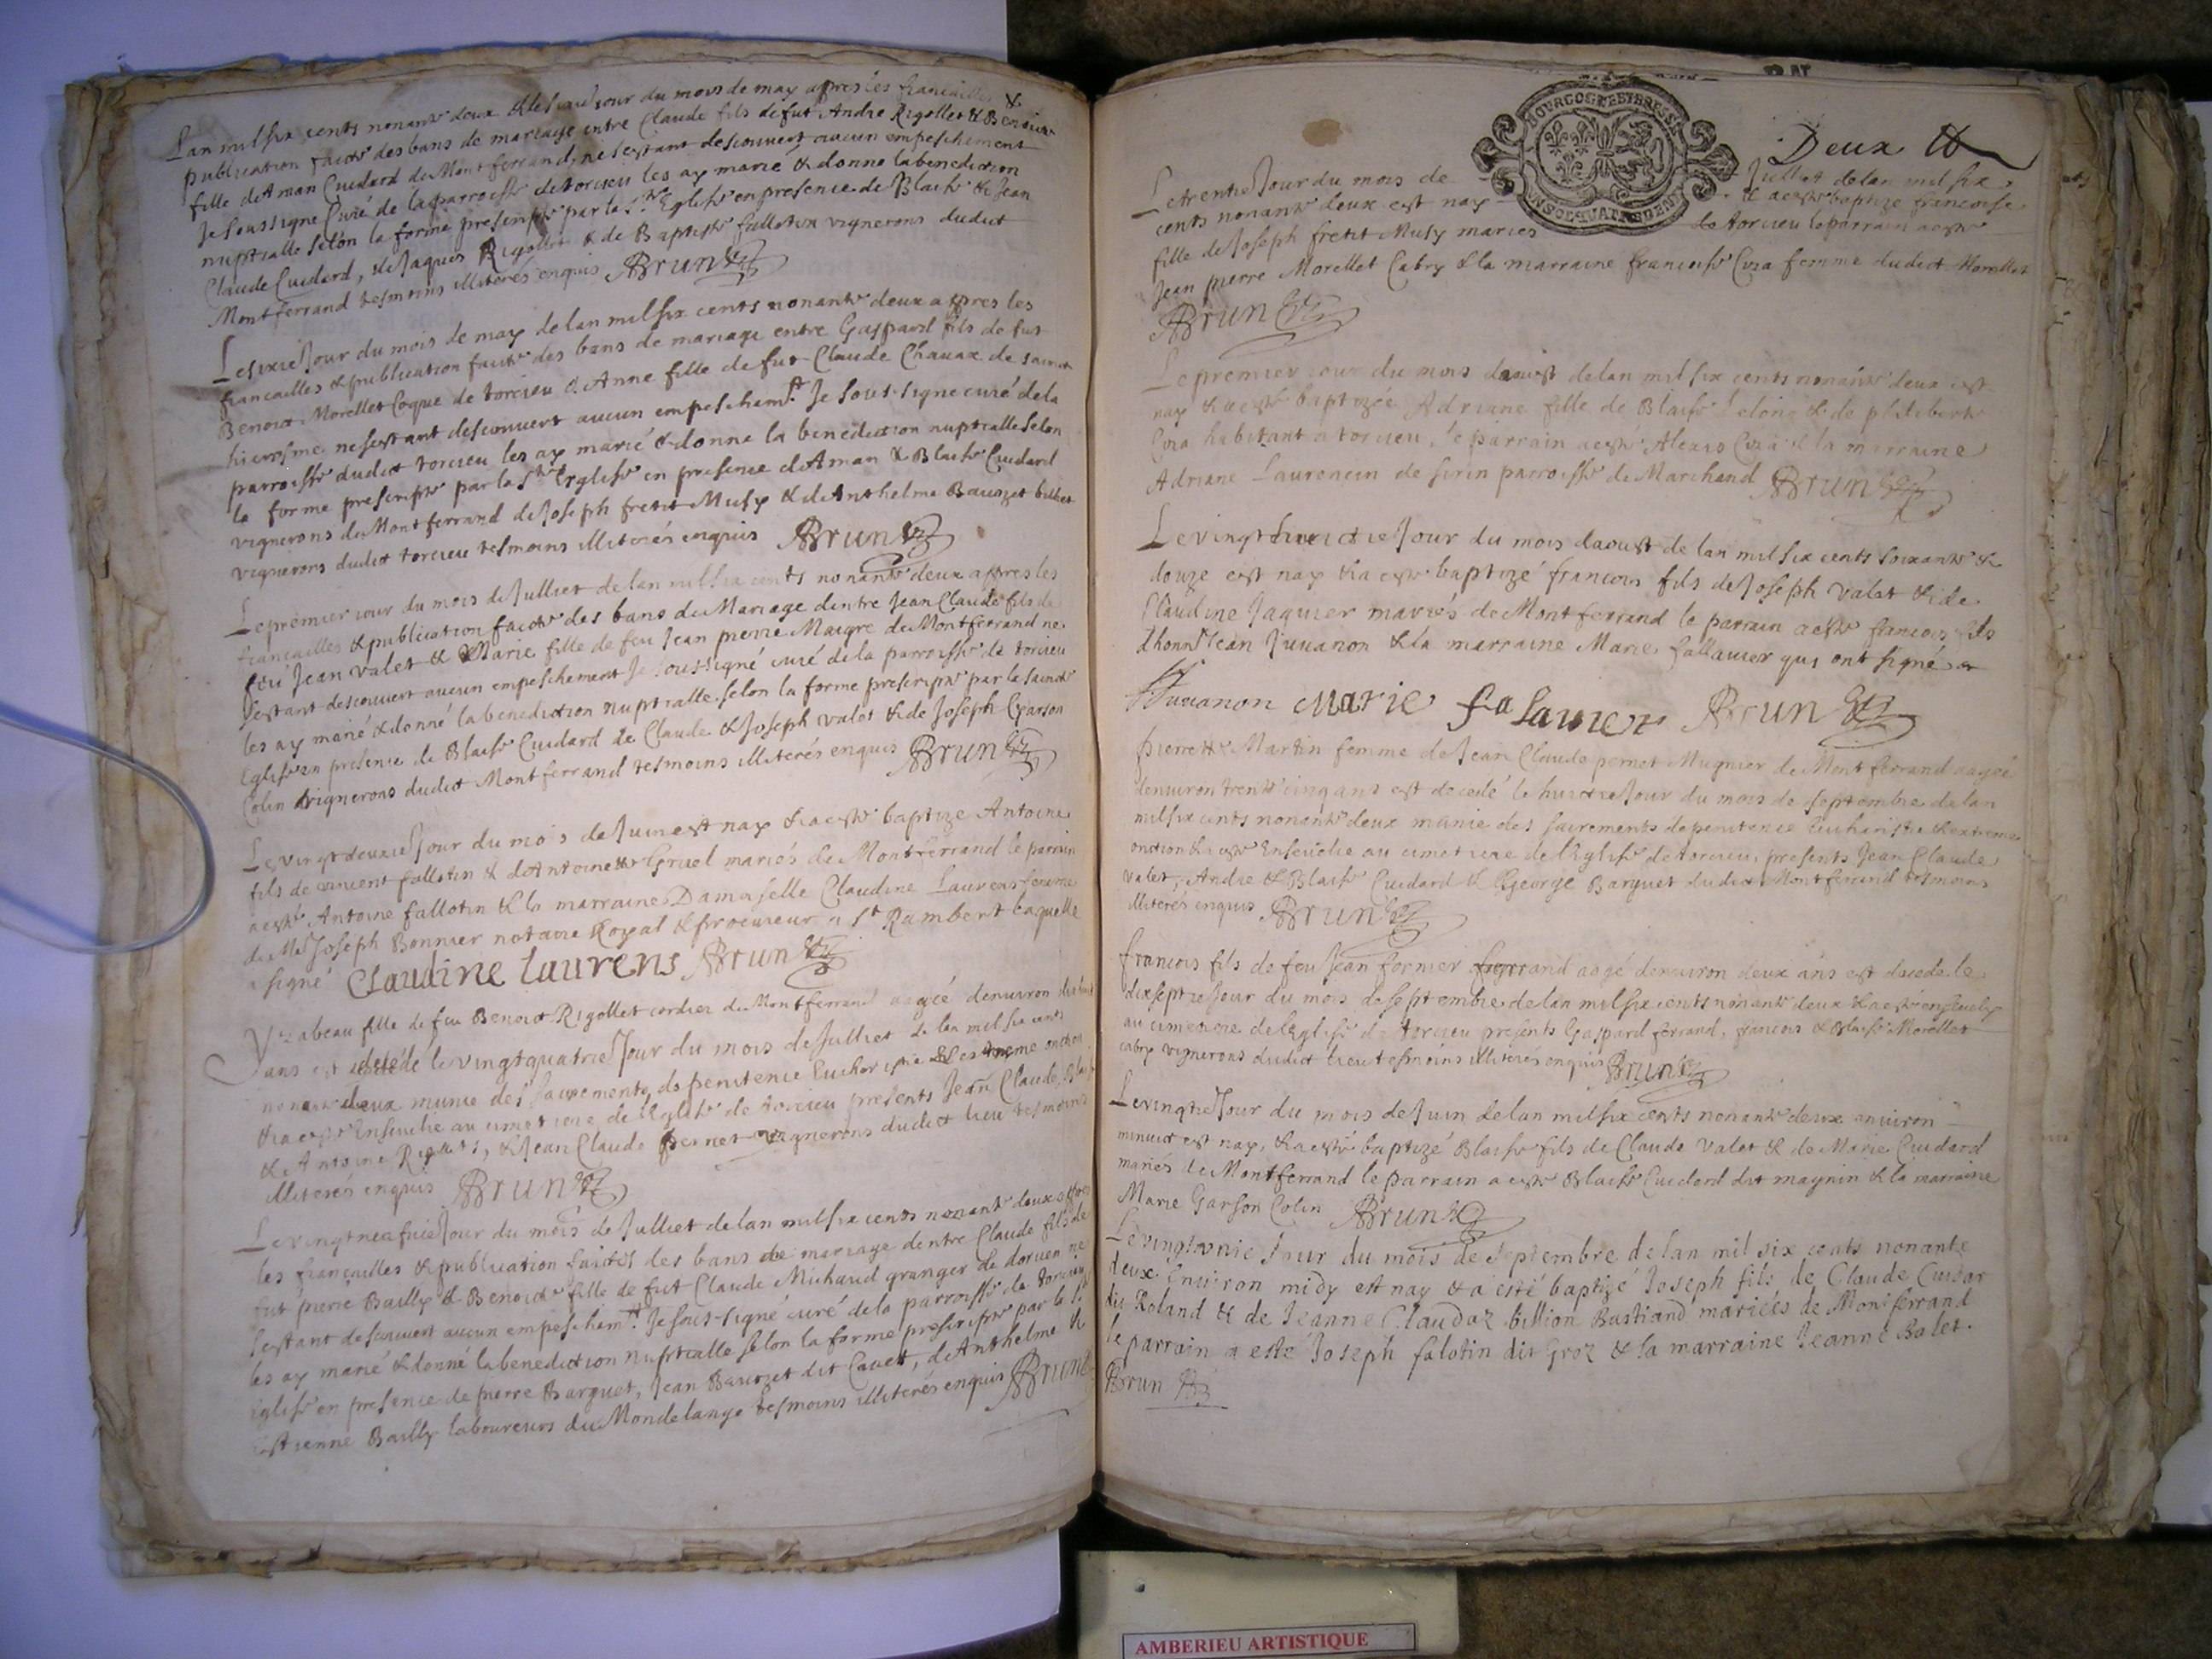 Lan mil six cents nonante deux & le jour du mois de may apres les fiancailles &
publication faicte des bans de mariage entre Claude fils de fut Andre Rigollet & Benoite
fille de Aman Cuidard de Montferrand, ne sestant descouvert aucun empeschement
Je soussigne Curé de la parroisse de torcieu les ay marié & donne la benediction
nuptialle selon la forme prescripte par la Ste Eglise en presence de Blaise & Jean
Claude Cuidard, de Jaques Rigollet & de Baptiste fallotin vignerons dudict
Montferrand tesmoins illiterés enquis Brun
Le sixie Jour du mois de may de lan mil six cents nonante deux appres les
fiancailles & publication faicte des bans de mariage entre Gaspard fils de fut
Benoict Morellet Coque de torcieu & Anne fille de fut Claude Chavax de sainct
hierosme ne sestant descouvert aucun empeschemt. Je sous-signe curé de la
parroisse dudict torcieu les ay marié & donne la benediction nuptialle selon
la forme prescripte par la Ste Eglise en presence de Aman & Blaise Cuidard
vignerons de Montferrand de Joseph fretit Musy & de Anthelme Bauzet billiet
vignerons dudict torcieu tesmoins illiterés enquis Brun
Le premier iour du mois de Julliet de lan mil six cents nonante deux appres les
fiancailles & publication faicte des bans de Mariage dentre Jean Claude fils de
feu Jean Valet & Marie fille de feu Jean pierre Maigre de Montferrand ne
sestant descouvert aucun empeschement Je sous-signé curé de la parroisse de torcieu
les ay marié & donné la benediction nuptialle selon la forme prescripte par la saincte
Eglise en presence de Blaise Cuidard de Claude & Joseph Valet & de Joseph Garson
Colin vignerons dudict Montferrand tesmoins illiterés enquis Brun
Le vingt deuxie Jour du mois de Juin est nay & a esté baptize Antoine
fils de vincent fallotin & d Antoinette Gruel mariés de Montferrand le parrain
a esté Antoine fallotin & la marraine Damaselle Claudine Laurens femme
de Me Joseph Bonnier notaire Royal & procureur a St Rambert laquelle
a signé Claudine laurens Brun
Yzabeau fille de feu Benoict Rigollet cordier de Montferrand aagée denviron
ans est decedé le vingtquatrie Jour du mois de Julliet de lan mil six cents
nonante deux munie des sacrements de penitence Eucharistie & extreme onction
& a esté Ensevelie au cimetiere de lEglise de torcieu presents Jean Claude, Blaise
& Antoine Rigollets, & Jean Claude pernet vignerons dudict lieu tesmoins
illiterés enquis Brun
Le vingtneufuie Jour du mois de Julliet de lan mil six cents nonante deux appres
les fiancailles & publication faictes des bans de mariage dentre Claude fils de
fut pierre Bailly & Benoicte fille de fut Claude Michaud granger de dorvan ne
sestant descouvert aucun empeschemt. Je sous-signé curé de la parroisse de torcieu
les ay marié & donné la benediction nuptialle selon la forme prescripte par la Ste
Eglise en presence de pierre Barguet, Jean Bauzet dit Cavet, de Anthelme &
Estienne Bailly laboureurs du Mondelange tesmoins illiterés enquis Brun
BOURGOGNE ET BRESSE
Deux
Le trentie Jour du mois de Julliet de lan mil six
cents nonante deux est nay & a esté baptize francoise
fille de Joseph fretit Musy mariés de torcieu le parrain a esté
Jean pierre Morellet Cabry & la marraine francoise Cora femme dudict Morellet
Brun
Le premier iour du mois daoust de lan mil six cents nonante deux est
nay & a esté baptizée Adriane fille de Blaise & de philiberte
Cora habitant a torcieu, le parrain a esté Alexis Cora & la marraine
Adriane Laurencin de parroisse de Marchand Brun
Le vingt huictie Jour du mois daoust de lan mil six cents soixante &
douze est nay & a esté baptizé francois fils de Joseph Valet & de
Claudine Jaquier mariés de Montferrand le parrain a esté francois fils
dhonn Jean Juvanon & la marraine Marie fallavier qui ont signé
Juvanon Marie falavier Brun
pierrette Martin femme de Jean Claude pernet Mugnier de Montferrand aagée
denviron trente cinq ans est decedé le huictie Jour du mois de septembre de lan
mil six cents nonante deux munie des sacrements de penitence Eucharistie & extreme
onction & a esté Ensevelie au cimetiere de lEglise de torcieu, presents Jean Claude
Valet, Andre & Blaise Cuidard & George Barguet dudict Montferrand tesmoins
illiterés enquis Brun
francois fils de feu Jean fornier ferrand aagé denviron deux ans est decede le
dixseptie Jour du mois de septembre de lan mil six cents nonante deux & a esté ensevely
au cimetiere de lEglise de torcieu presents Gaspard ferrand, francois & Blaise Morellet
cabry vignerons dudict lieu tesmoins illiterés enquis Brun
Le vingtie Jour du mois de Juin de lan mil six cents nonante deux environ
minuict est nay, & a esté baptizé Blaise fils de Claude Valet & de Marie Cuidard
mariés de Montferrand le parrain a esté Blaise Cuidard dit maynin & la marraine
Marie Garson Colin Brun
Le vingtunie Jour du mois de septembre de lan mil six cents nonante
deux Environ midy est nay & a esté baptizé Joseph fils de Claude Cuidar
dit Roland & de Jeanne Claudaz billion Bastiand mariées de Montferrand
le parrain a esté Joseph falotin dit Groz & la marraine Jeanne Balet.
Brun
AMBERIEU ARTISTIQUE